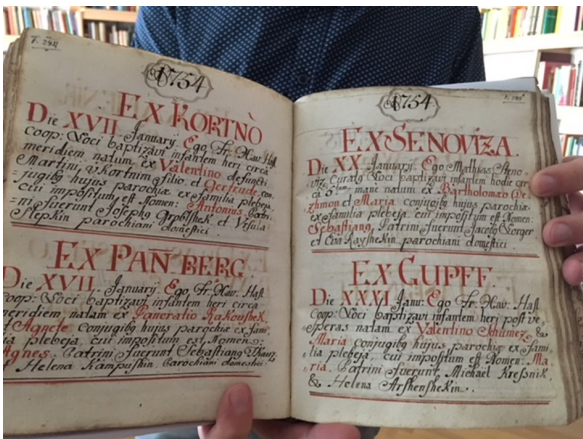 1754
EX KORTNÒ
Die XVII January. Ego Fr. Xav: Hast
coop: Loci baptizavi infantem heri circa
meridiem natum ex Valentino defuncti
Martini, filio, et Gertrude con-
jugibq hujus parochiæ ex familia plebeja,
cui impositum est Nomen: Antonius. Patri-
ni, fuerunt Josephq et Vrsula
Slepkin parochiani domestici.
EX PAN̄BERG
Die XVII. January. Ego Fr. Xav: Hast
coop: Loci baptizavi infantem heri circa
meridiem natam ex Pancratio
Agnete conjugibq hujus parochiæ ex fami-
lia plebeja, cui impositum est Nomen:
Agnes. Patrini fuerunt Sebastianq
Helena Kampushin. parochiani domestici
1754
EX SENOVIZA
Die XX January. Ego Mathias
Curatq Loci baptizavi infantem hodie cir-
ca mane natum ex Bartholomæo
et Maria conjugibq hujus parochiæ
ex familia plebeja, cui impositum est Nomen:
Sebastianq. Patrini fuerunt Jacobq Gorger
et Eva parochiani domestici.
EX GUPFF
Die XXXI Janu: Ego Fr. Xav: Hast
Coop: Loci baptizavi infantem heri post ve-
speras natam ex Valentino Schumez, &
Maria conjugibq hujus parochiæ ex fami-
lia plebeja, cui impositum est Nomen: Ma-
ria. Patrini fuerunt Michael Kressnik
& Helena Arshenshekin.